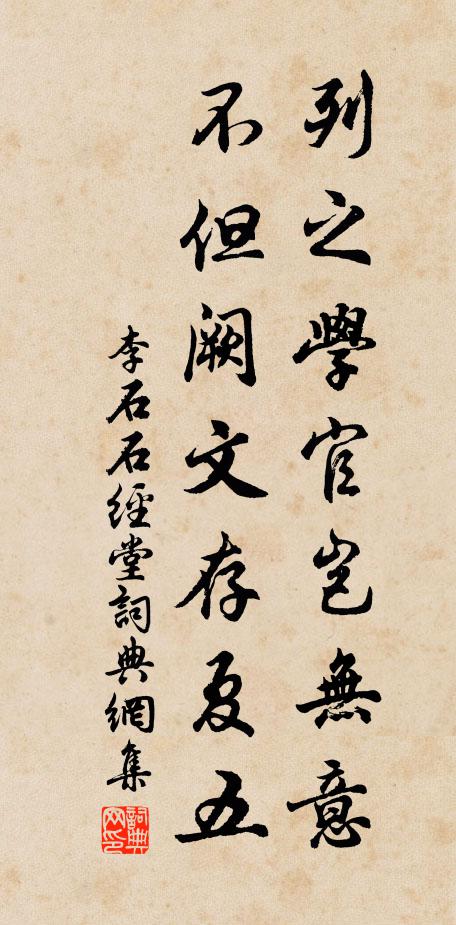 列之學官豈無意
不但阙文存夏五
李石石經堂詞典網集
詞典网印